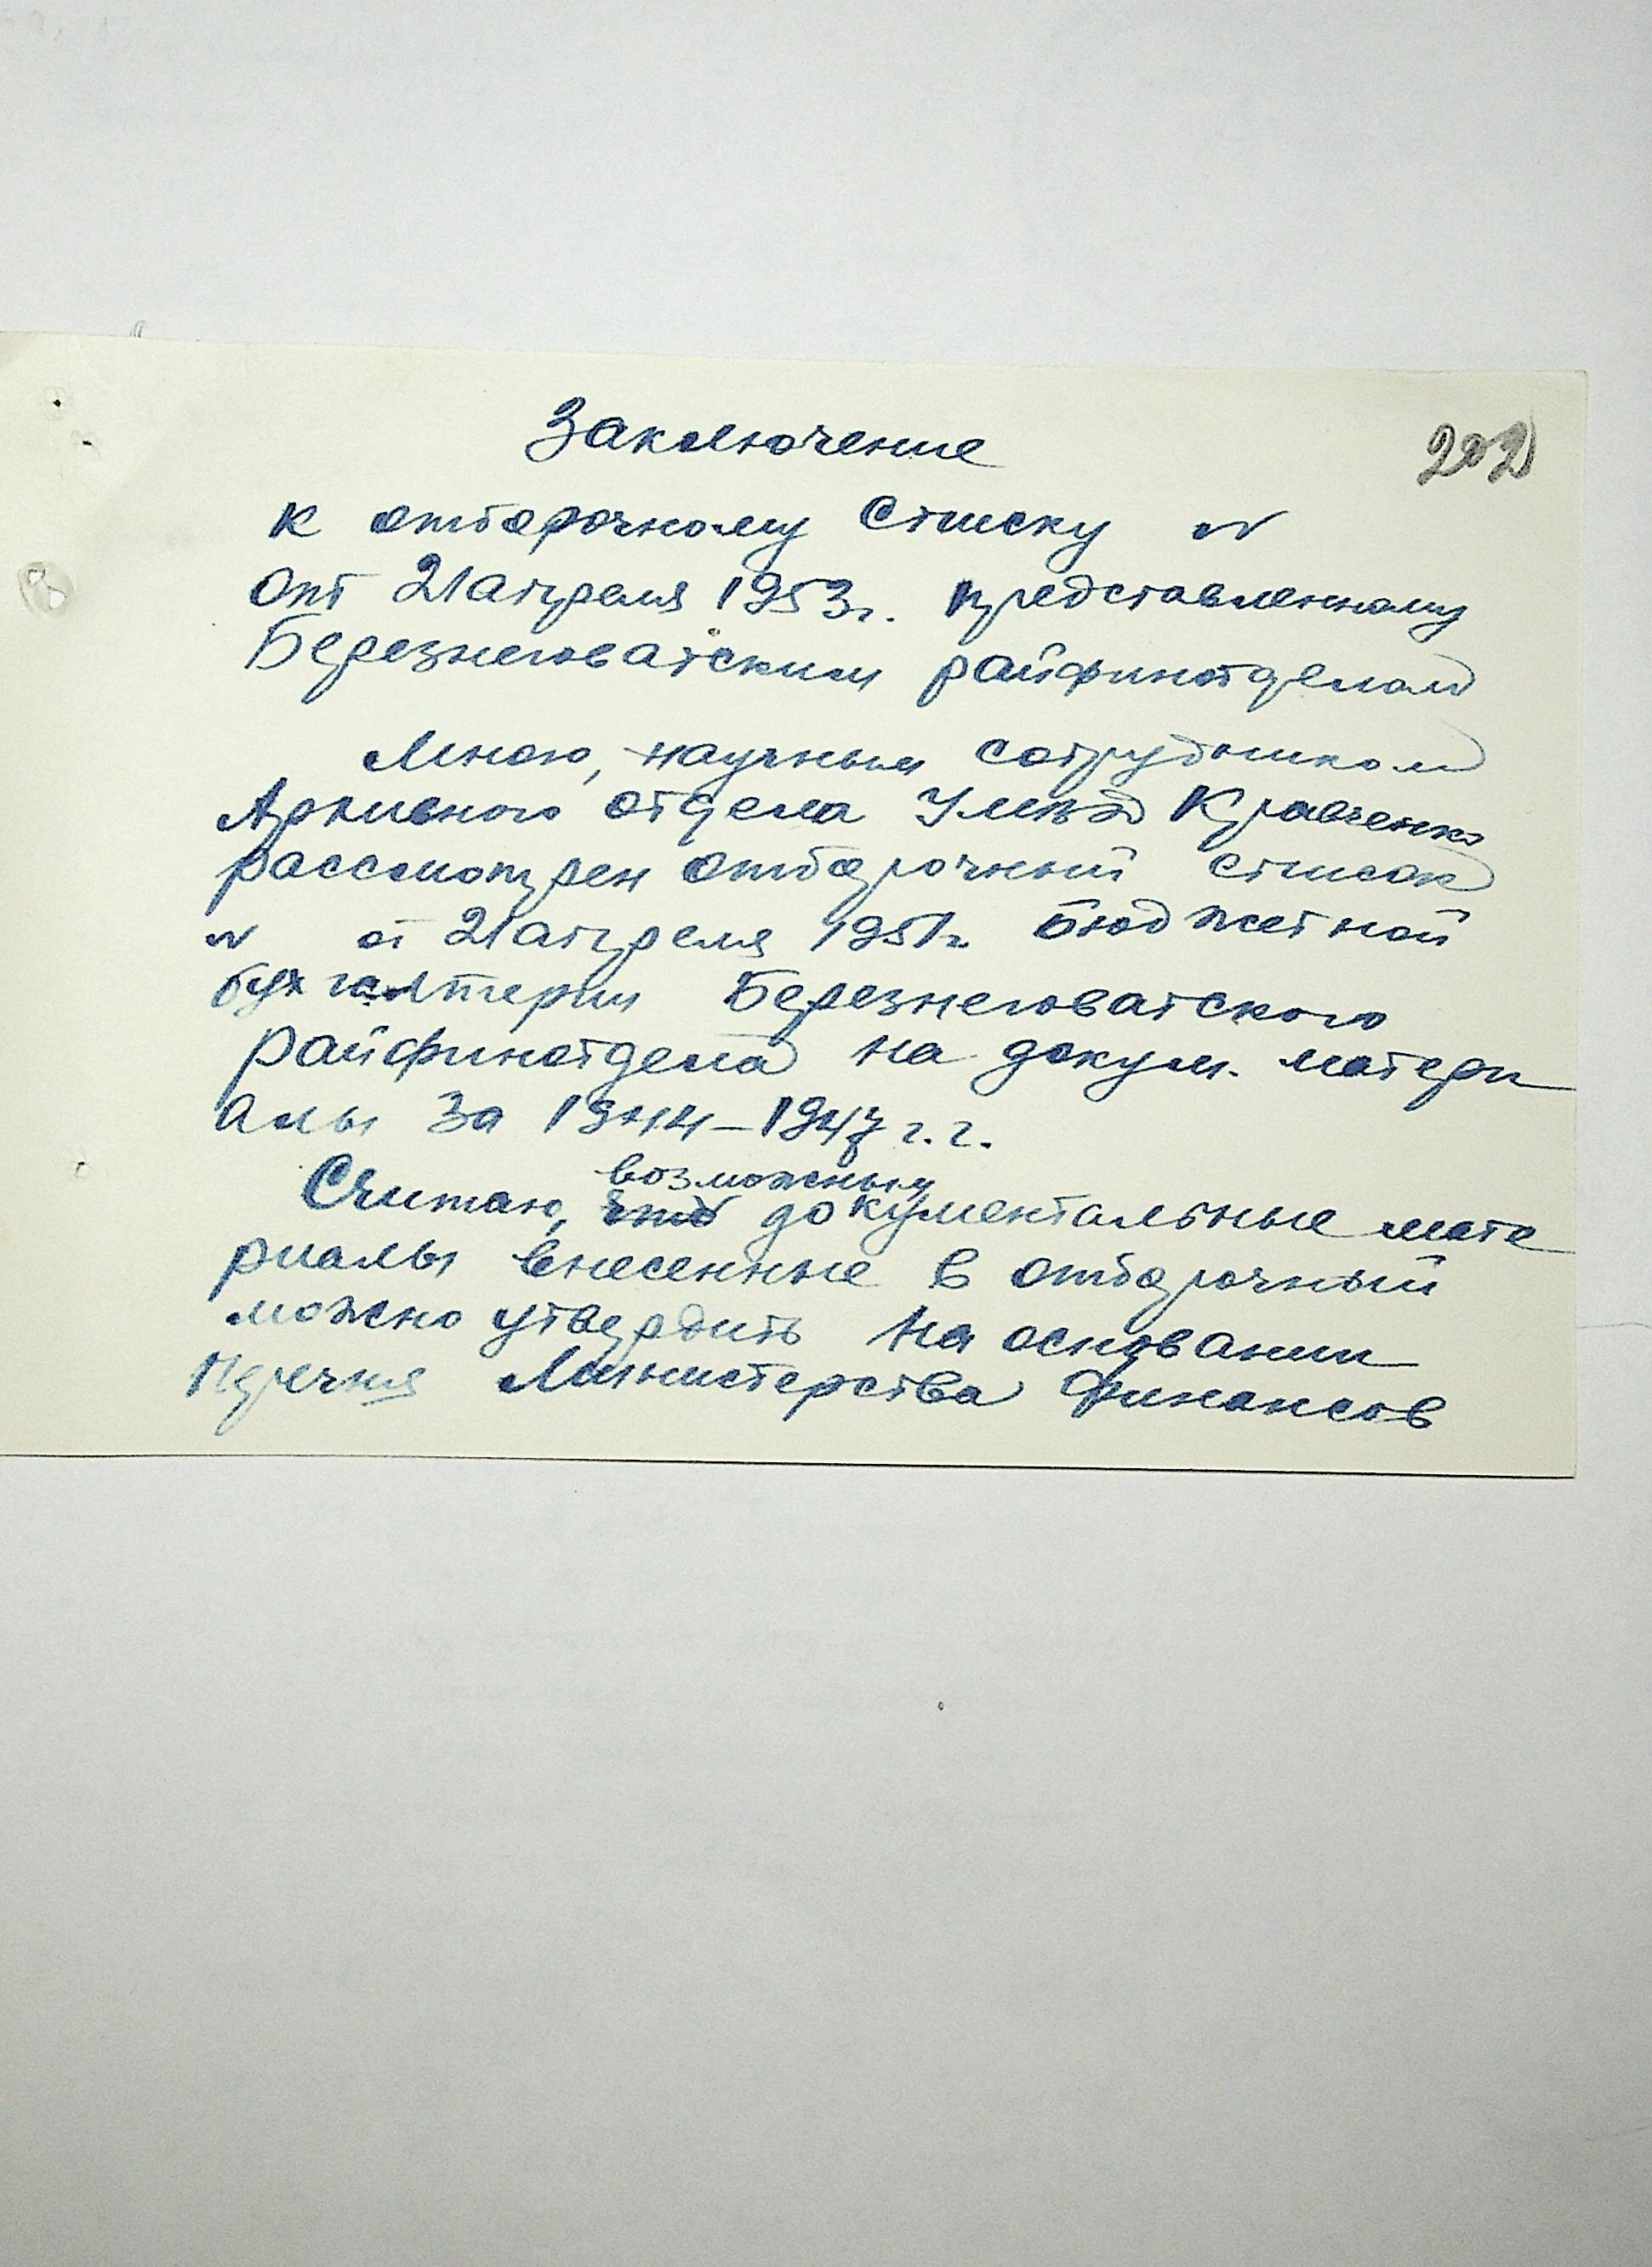 Заключение
202
к отборочному списку №
от 21 апреля 1953 г. представленному
Березнеговатским райфинотделом
Мною, научным сотрудником
Архивного отдела УМВД Кравченко
рассмотрен отборочный список
№ от 21 апреля 1951 г. бюджетной
бухгалтерии Березнеговатского
райфинотдела на докум. матери
алы за 1944–1947 г.г.
возможным
Считаю, что документальные мате
риалы внесенные в отборочный
можно утвердить на основании
Перечня Министерства Финансов